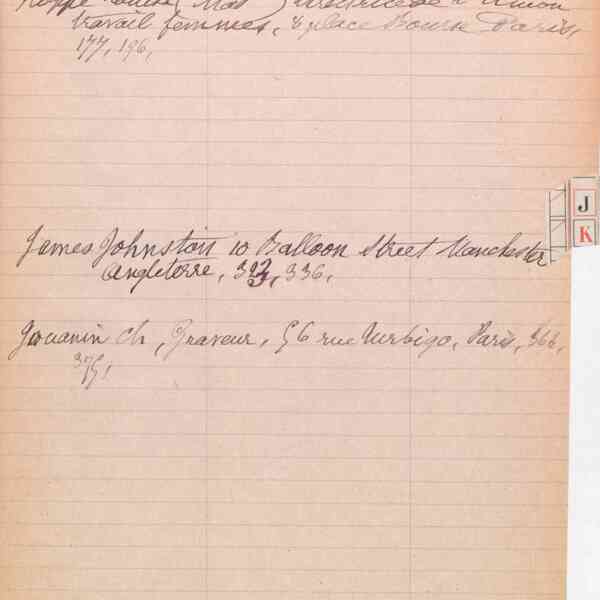 travail femmes, place Bourse Paris,
177, 196,
J
K
James Johnston 10 Balloon Street Manchester
Angleterre, 323, 336,
Jouanin Ch, Graveur, 56 rue Turbigo, Paris, 366,
375,